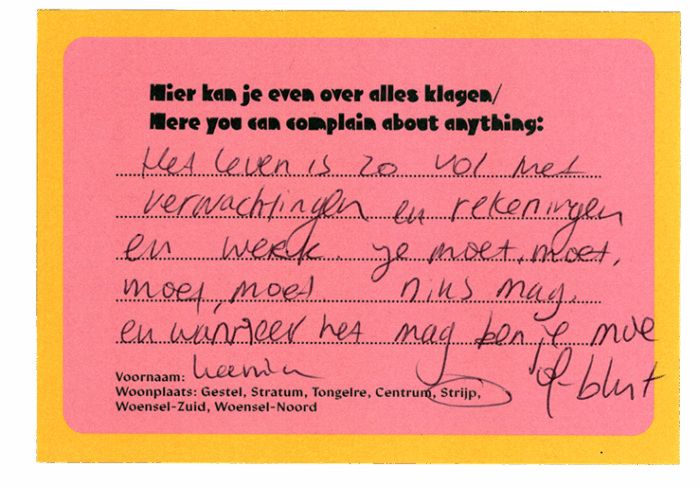 Hier kan je even over alles klagen/
Here you can complain about anything:
Het leven is zo vol met
verwachtingen en rekeningen
en werk. Je moet, moet,
moet, moet. niks mag.
en wanneer het mag ben je moe
of blut
Voornaam:
Woonplaats: Gestel, Stratum, Tongelre, Centrum, Strijp,
Woensel-Zuid, Woensel-Noord